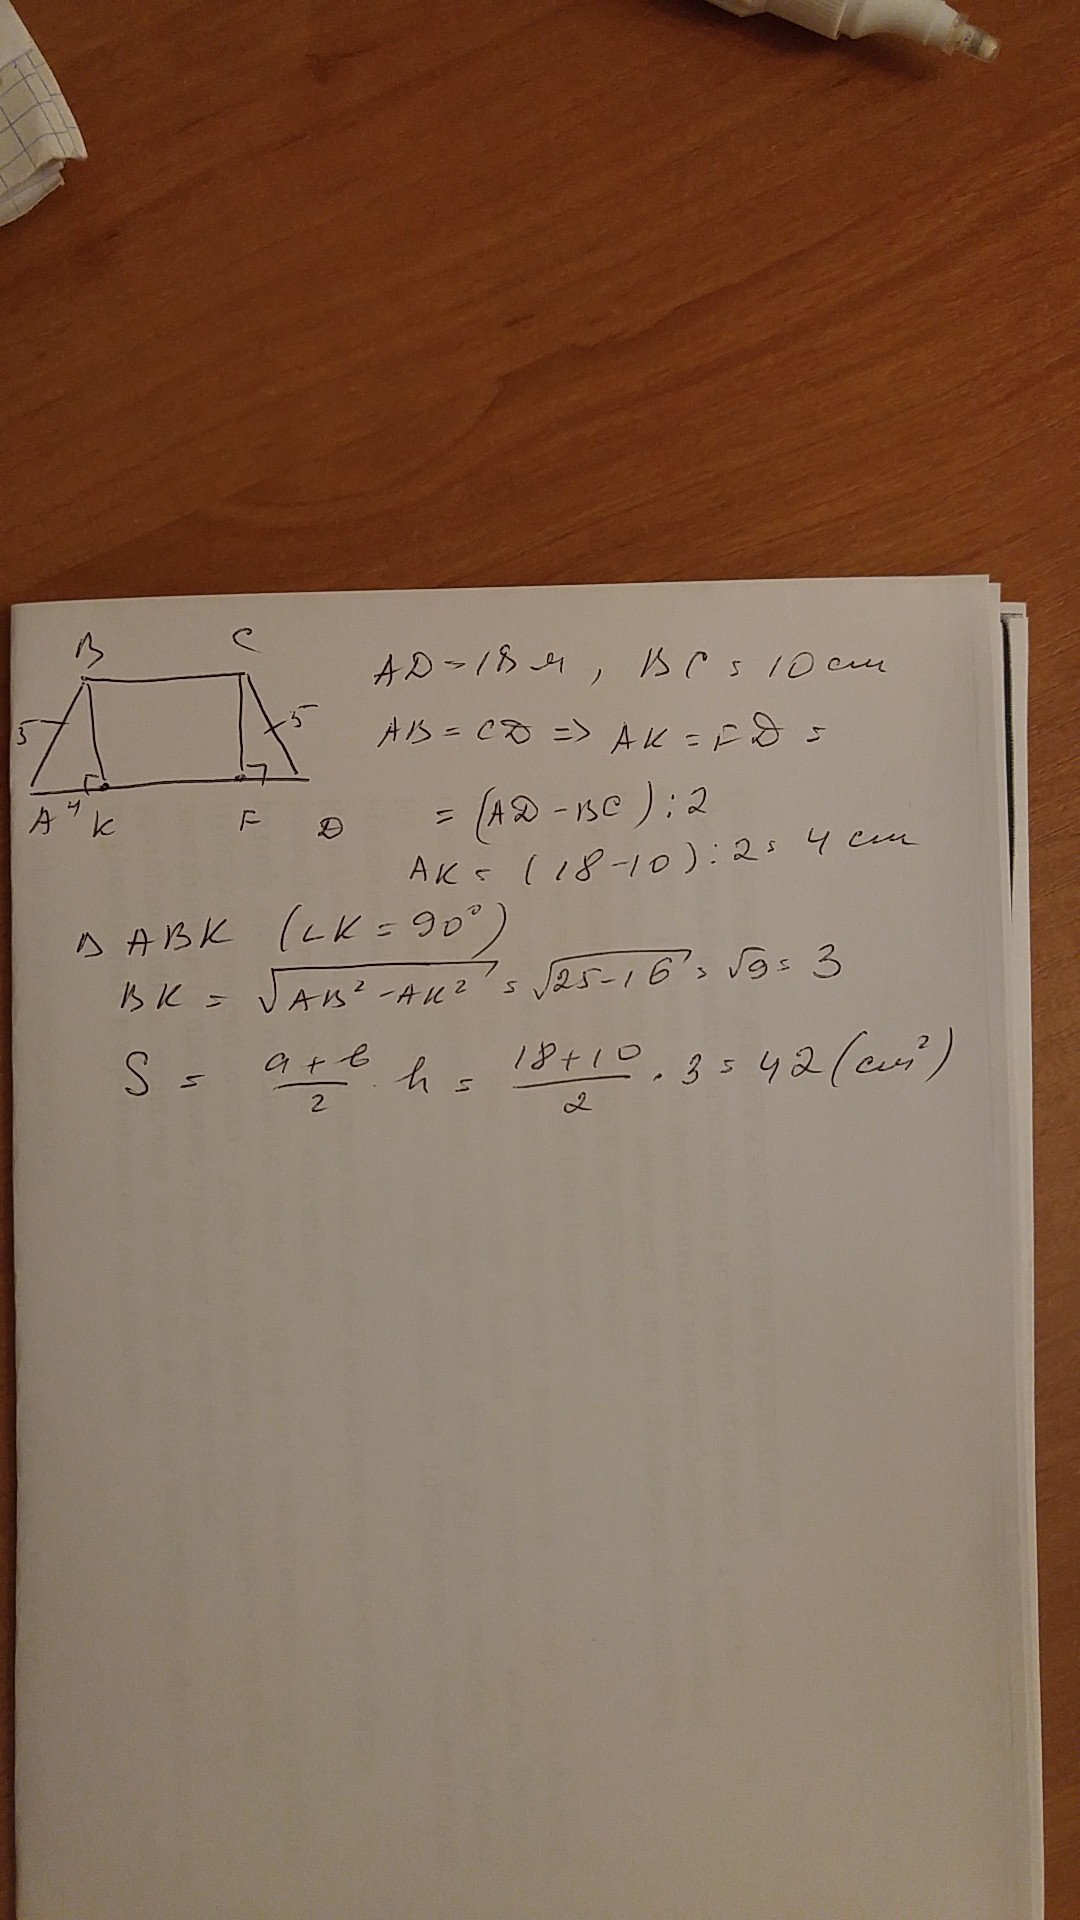 B C
5 5
A 4 K F D
AD = 18 м, BC = 10 см
AB = CD => AK = FD =
= (AD - BC) : 2
AK = (18-10) : 2 = 4 см
△ ABK (∠K = 90°)
BK = √AB² - AK² = √25-16 = √9 = 3
S = a+b/2 · h = 18+10/2 · 3 = 42 (см²)